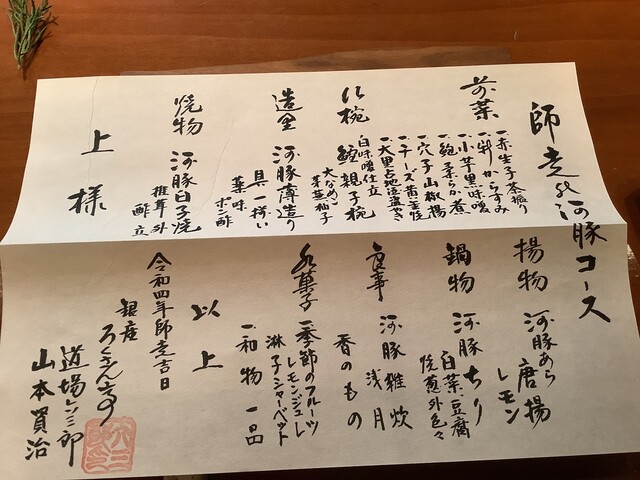 師走の河豚コース
前菜
一、赤生子茶振り
一、新からすみ
一、小芋黒味噌
一、鮑柔らか煮
一、穴子山椒揚
一、チーズ黄金焼
一、大黒占地
お椀
白味噌仕立
鱈親子椀
大なめこ
芽葱 柚子
造里
河豚薄造り
具一揃い
薬味
ポン酢
焼物
河豚白子焼
椎茸 外
酢立
上様
揚物
河豚あら
唐揚
レモン
鍋物
河豚ちり
白菜 豆腐
焼葱外色々
食事
河豚雑炊
浅月
香のもの
水菓子
一、季節のフルーツ
レモンジュレ
淋子シャーベット
一、和物一品
以上
令和四年師走吉日
銀座
ろくさん亭
道場六三郎
山本賢治